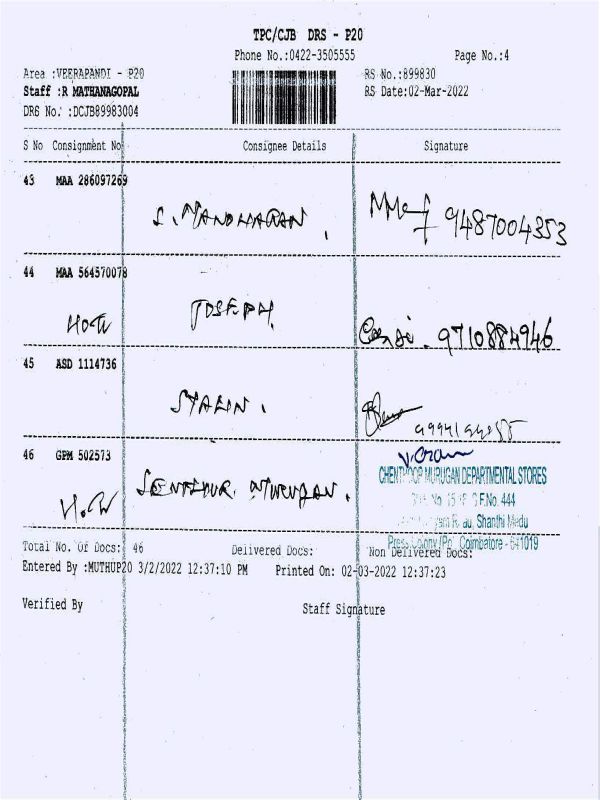 TPC/CJB DRS - P20
Phone No.:0422-3505555 Page No.:4
Area :VEERAPANDI - P20 RS No.:899830
Staff :R MATHANAGOPAL RS Date:02-Mar-2022
DRS No. :DCJB89983004
S No Consignment No Consignee Details Signature
43 MAA 286097269
S. MANOHARAN 9487004353
44 MAA 564570078
JOSEPH 9710884946
45 ASD 1114736
STALIN
46 GPM 502573
SENTHUR MURUGAN.
CHENTHOOR MURUGAN DEPARTMENTAL STORES
S.F.No. 444
Shanthi Medu
Press Colony Coimbatore - 641019
Total No. Of Docs: 46 Delivered Docs: Non Delivered Docs:
Entered By :MUTHUP20 3/2/2022 12:37:10 PM Printed On: 02-03-2022 12:37:23
Verified By Staff Signature